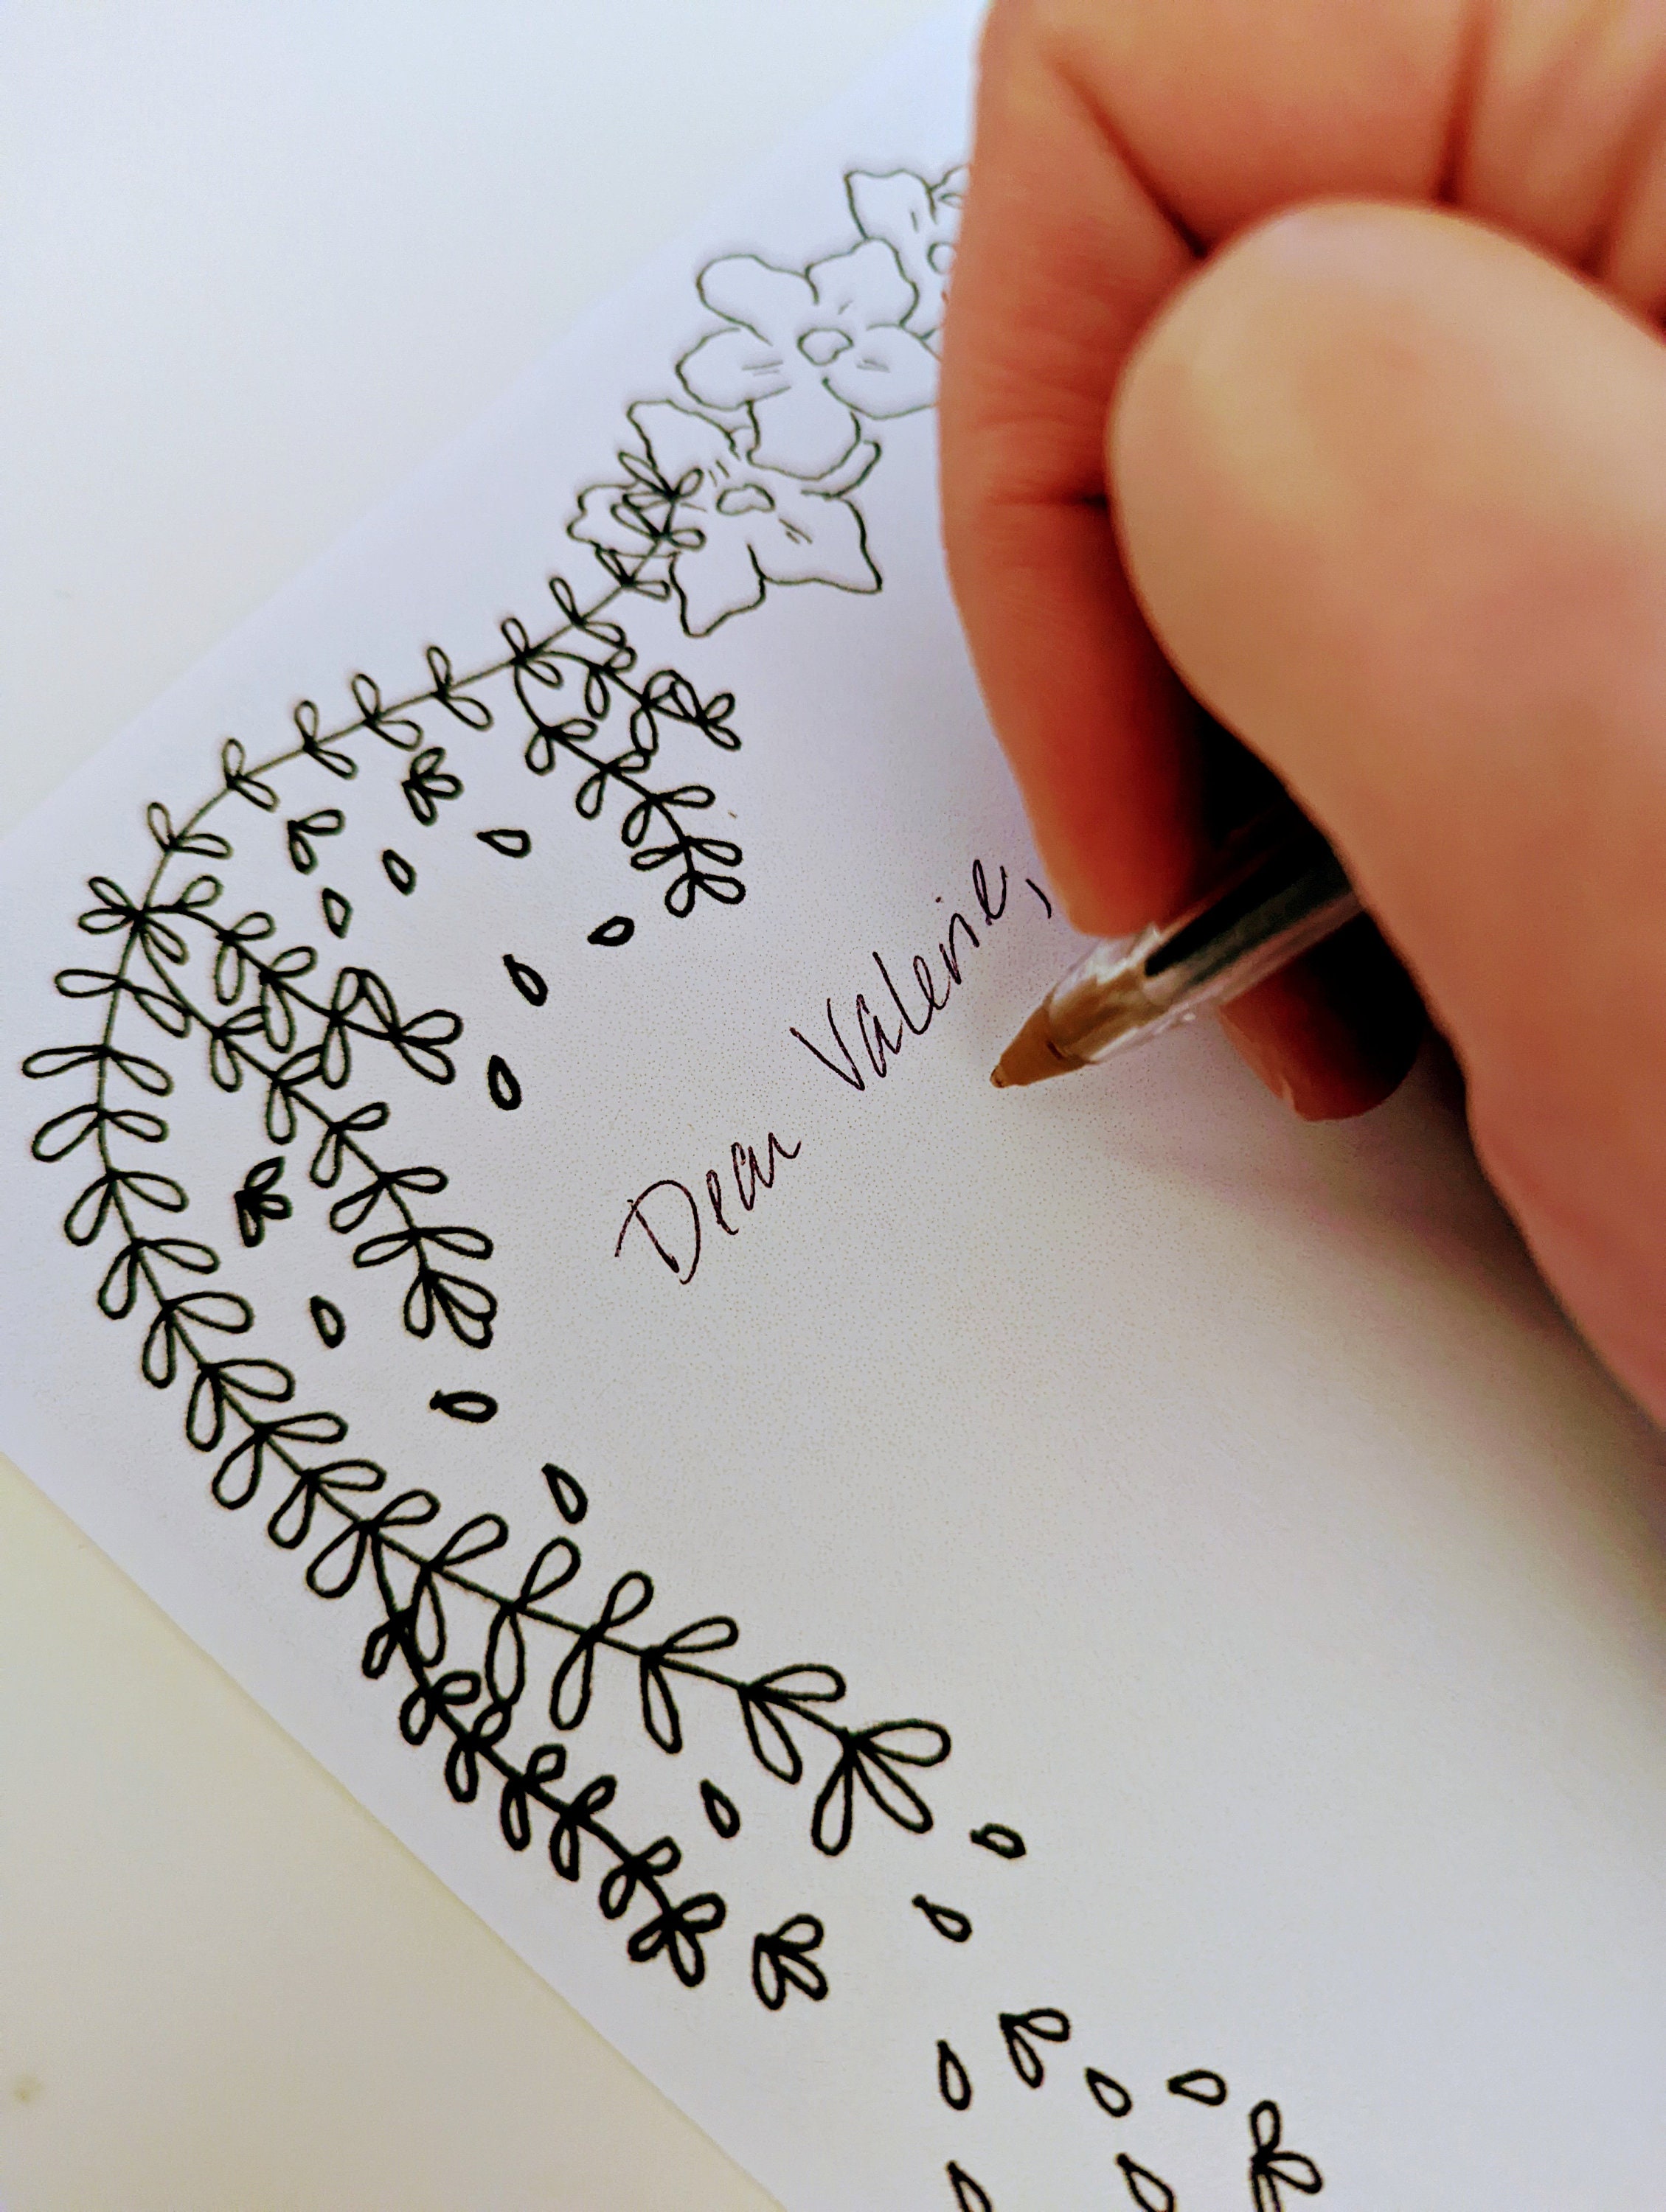 Dear Valerie,